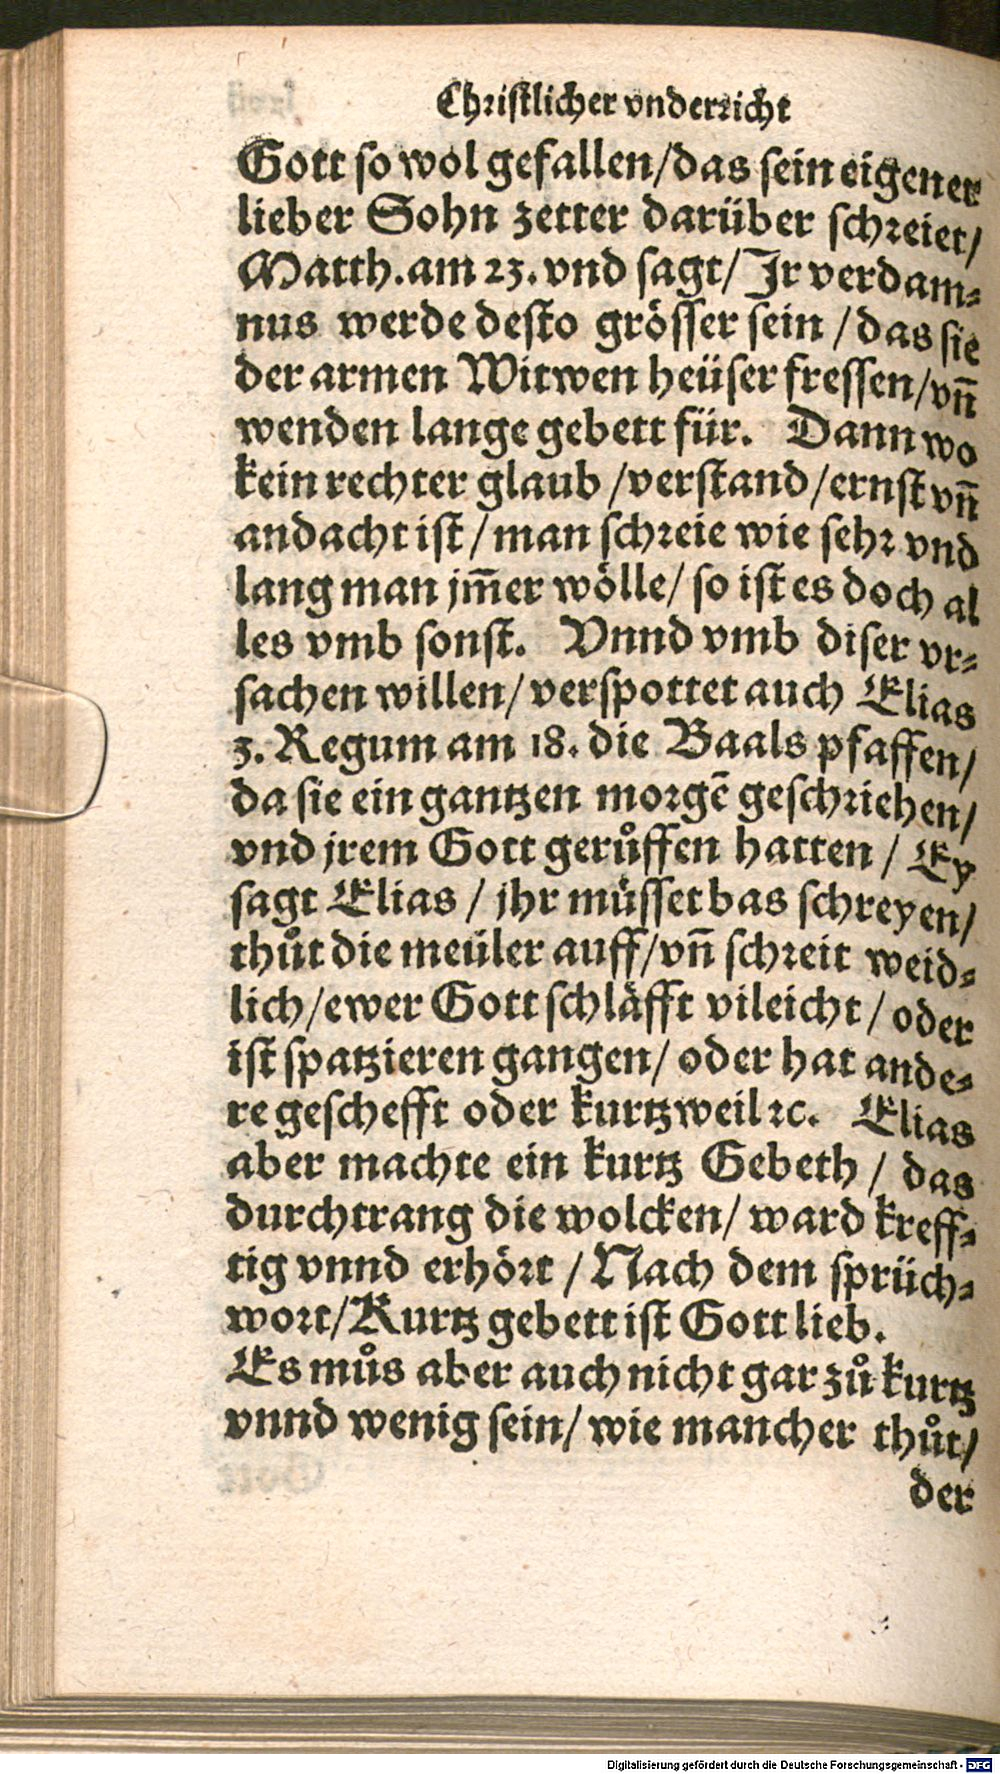 Christlicher vnderricht
Gott so wol gefallen/das sein eigener
lieber Sohn zetter darüber schreiet/
Matth.am 23. vnd sagt/ Jr verdam⸗
nus werde desto grösser sein /das sie
der armen Witwen heüser fressen/vñ
wenden lange gebett für. Dann wo
kein rechter glaub /verstand/ernst vñ
andacht ist/man schreie wie sehr vnd
lang man jm̃er wölle/ so ist es doch al
les vmb sonst. Vnnd vmb diser vr⸗
sachen willen/ verspottet auch Elias
3. Regum am 18. die Baals pfaffen/
da sie ein gantzen morgẽ geschriehen/
vnd jrem Gott gerůffen hatten / Ey
sagt Elias / jhr müsset bas schreyen/
thůt die meüler auff/vñ schreit weid⸗
lich/ewer Gott schläfft vileicht/ oder
ist spatzieren gangen/ oder hat ande⸗
re geschefft oder kurtzweil ꝛc. Elias
aber machte ein kurtz Gebeth / das
durchtrang die wolcken/ ward kreff⸗
tig vnnd erhört /Nach dem sprüch⸗
wort/Kurtz gebett ist Gott lieb.
Es můs aber auch nicht gar zů kurtz
vnnd wenig sein/ wie mancher thůt/
der
Digitalisierung gefördert durch die Deutsche Forschungsgemeinschaft - DFG